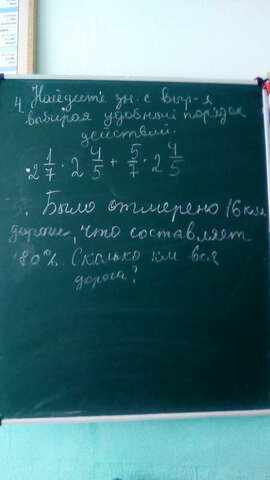 4. Найдите зн. с выр-я
выбирая удобный порядок
действий.
2 1/7 · 2 4/5 + 5/7 · 2 4/5
5. Было отмерено 16 км
дороги, что составляет
80%. Сколько км вся
дорога?